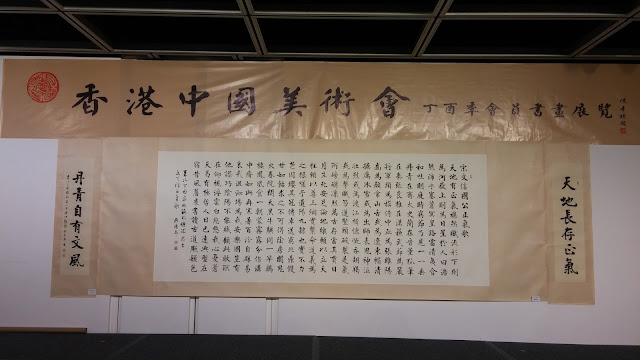 香港中國美術會 丁酉秊會員書畫展覽
天地長存正氣
宋文信國公正氣歌
天地有正氣雜然賦流形下則
為河嶽上則為日星於人曰浩
然沛乎塞蒼冥皇路當清夷含
和吐明庭時窮節乃見一一垂
丹青在齊太史簡在晉董狐筆
在秦張良椎在漢蘇武節為嚴
將軍頭為嵇侍中血為張睢陽
齒為顏常山舌或為遼東帽清
操厲冰雪或為出師表鬼神泣
壯烈或為渡江楫慷慨吞胡羯
或為擊賊笏逆豎頭破裂是氣
所磅礴凜烈萬古存當其貫日
月生死安足論地維賴以立天
柱賴以尊三綱實繫命道義為
之根嗟予遘陽九隸也實不力
楚囚纓其冠傳車送窮北鼎鑊
甘如飴求之不可得陰房闃鬼
火春院閟天黑牛驥同一皂雞
棲鳳凰食一朝蒙霧露分作溝
中瘠如此再寒暑百沴自辟易
哀哉沮洳場為我安樂國豈有
他謬巧陰陽不能賊顧此耿耿
在仰視浮雲白悠悠我心憂蒼
天曷有極哲人日已遠典型在
夙昔風簷展書讀古道照顏色
丹青自有文風